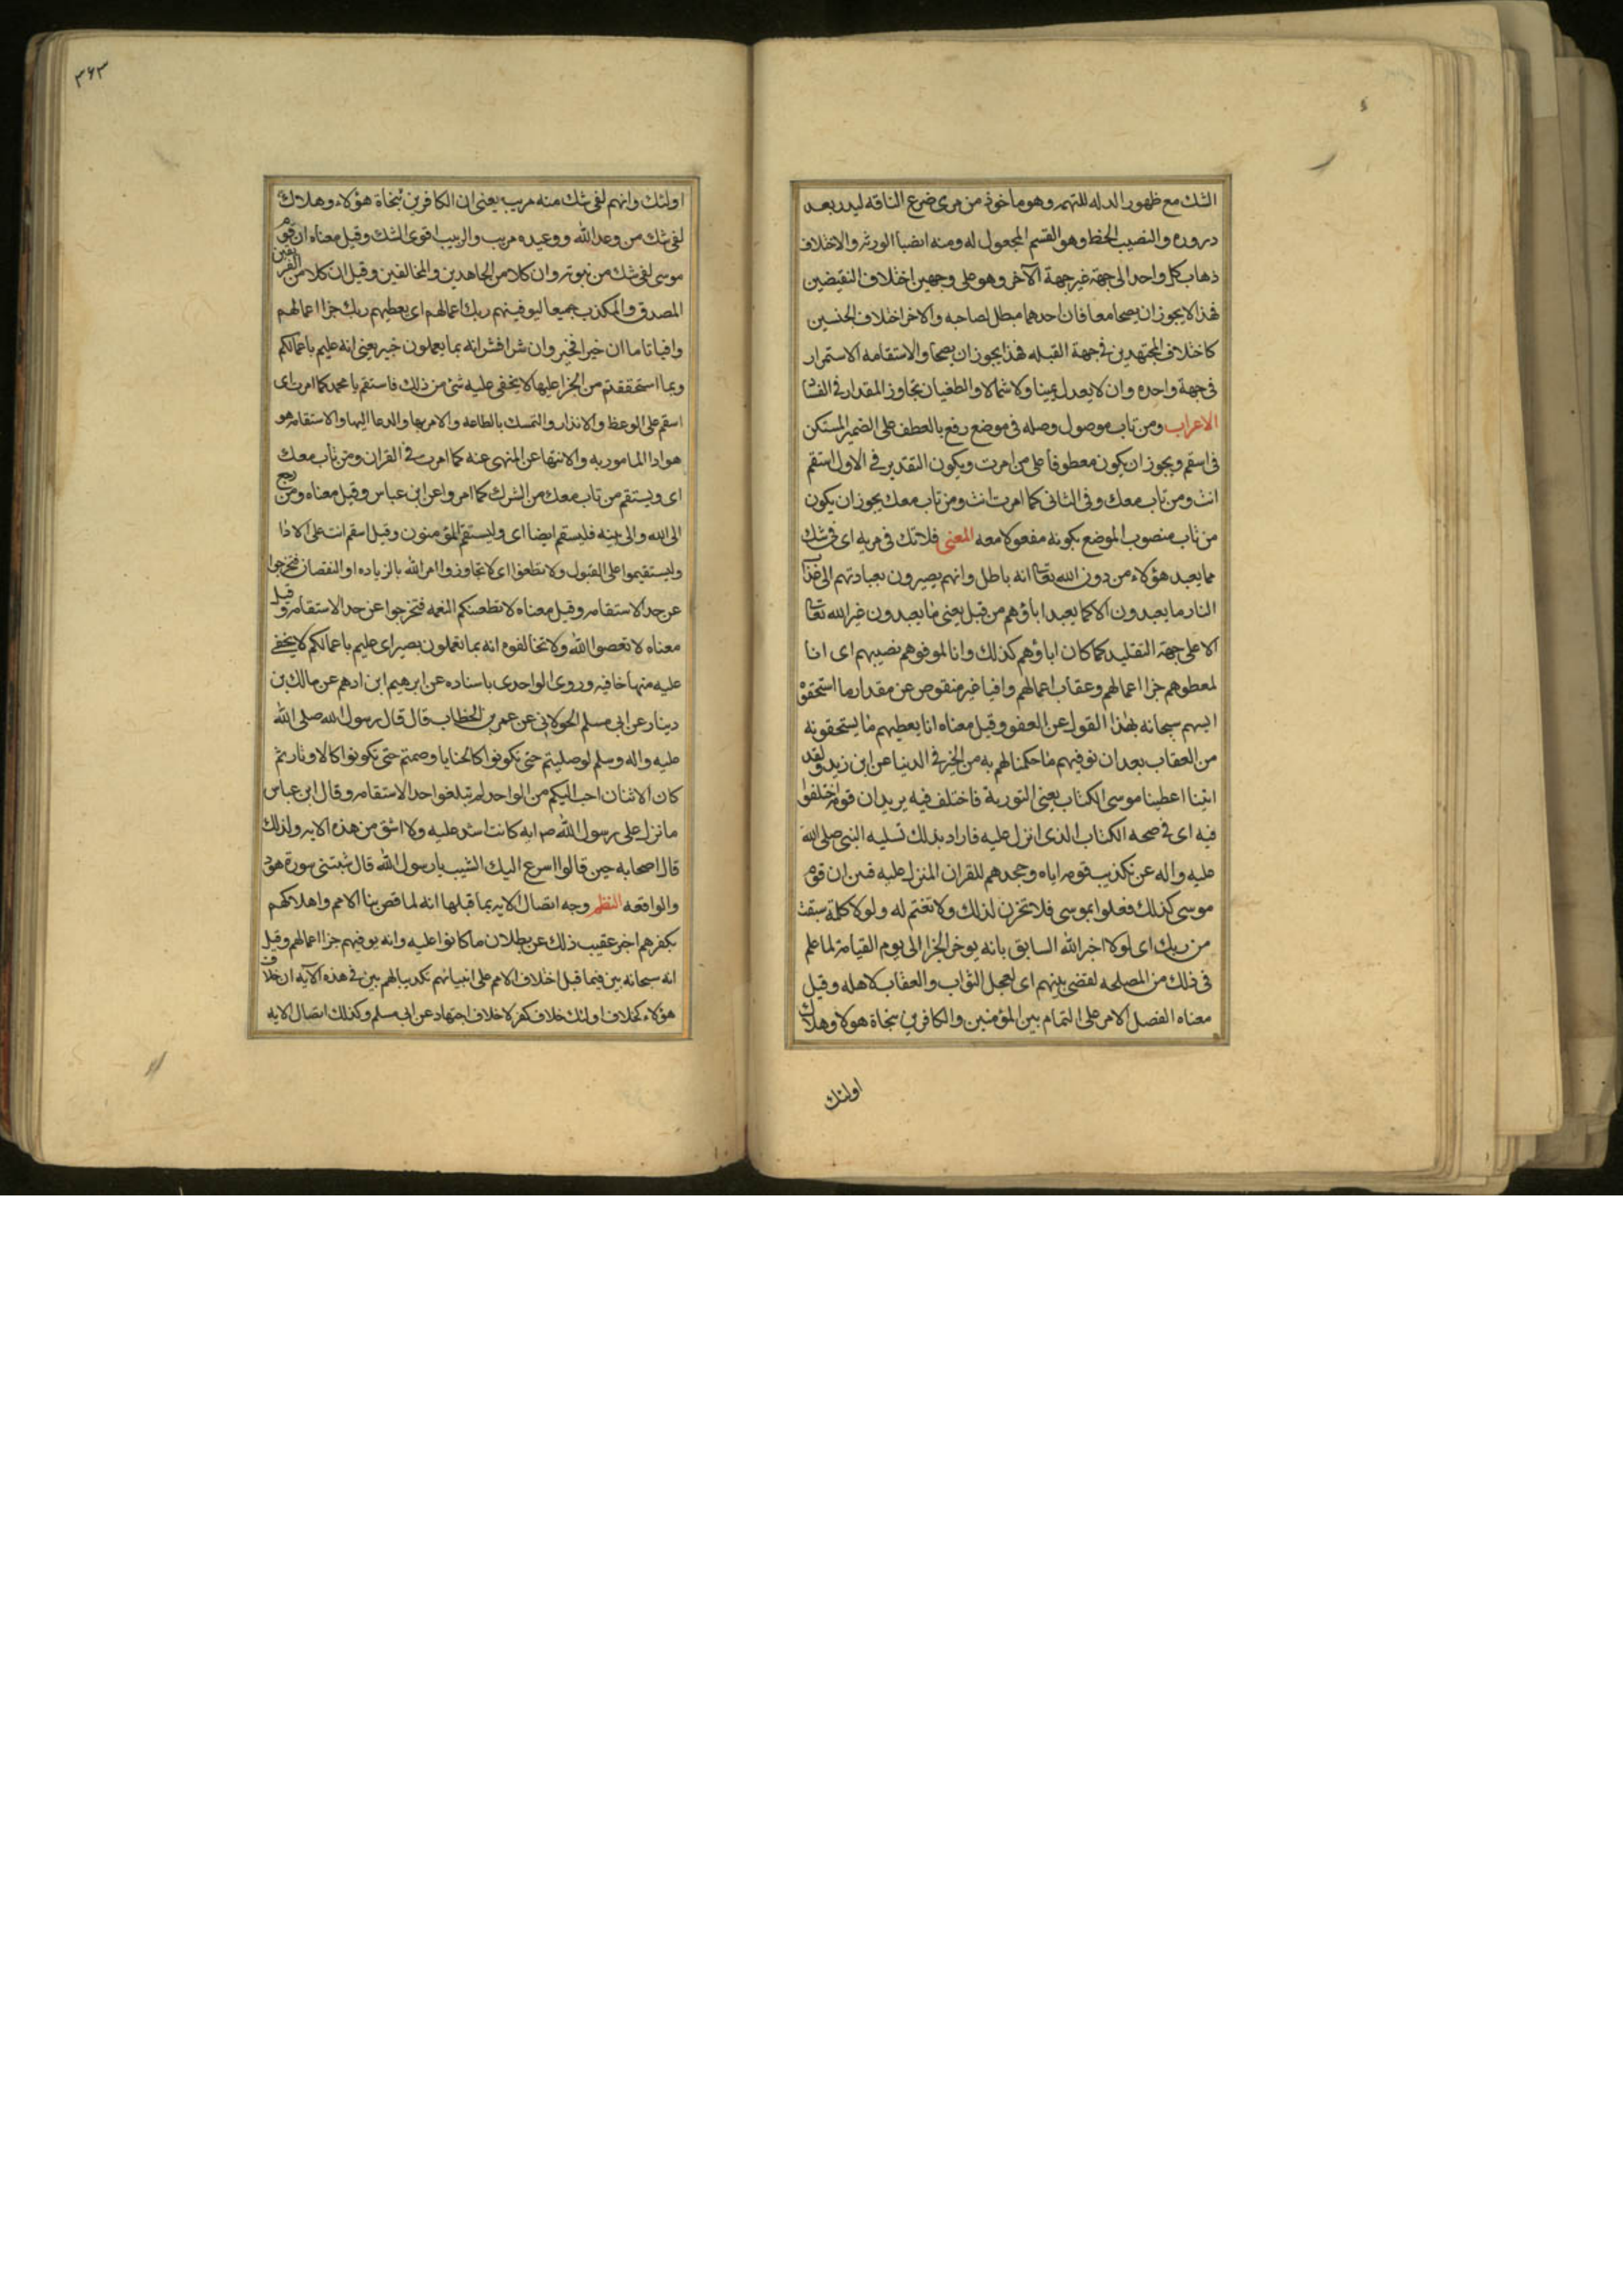 الشك مع ظهور الدلاله للتهمه وهو ماخوذ من مرى ضرع الناقه ليدر بعد
دروره والنصيب الحظ وهو القسم المجعول له ومنه انصبا الورثه والاختلاف
ذهاب كل واحد الى جهة غير جهة الآخر وهو على وجهين اختلاف النقيضين
فهذا لا يجوز ان يصحا معا فان احدهما مبطل لصاحبه والاخر اختلاف الجنسين
كاختلاف المجتهدين فى جهة القبله فهذا يجوز ان يصحا والاستقامه الاستمرار
فى جهة واحده وان لا يعدل يمينا ولا شمالا والطغيان تجاوز المقدار فى الفساد
الاعراب ومن تاب موصول وصله فى موضع رفع بالعطف على الضمير المستكن
فى استقم ويجوز ان يكون معطوفا على من امرت ويكون التقدير فى الاول استقم
انت ومن تاب معك وفى الثانى كما امرت انت ومن تاب معك يجوز ان يكون
من تاب منصوب الموضع بكونه مفعولا معه المعنى فلا تك فى مريه اى فى شك
مما يعبد هؤلاء من دون الله تعالى انه باطل وانهم يصيرون بعبادتهم الى عذاب
النار ما يعبدون الا كما يعبد اباؤهم من قبل يعنى ما يعبدون غير الله تعالى
الا على جهة التقليد كما كان اباؤهم كذلك وانا لموفوهم نصيبهم اى انا
لمعطوهم جزا اعمالهم وعقاب اعمالهم وافيا غير منقوص عن مقدار ما استحقوه
ايسهم سبحانه بهذا القول عن العفو وقيل معناه انا يعطيهم ما يستحقونه
من العقاب بعد ان نوفيهم ما حكمنا لهم به من الخير فى الدنيا عن ابن زيد ولقد
اتينا اعطينا موسى الكتاب يعنى التورية فاختلف فيه يريد ان قومه اختلفوا
فيه اى فى صحه الكتاب الذى انزل عليه فاراد بذلك تسليه النبى صلى الله
عليه واله عن تكذيب قومه اياه وجحدهم للقران المنزل عليه فبين ان قوم
موسى كذلك فعلوا بموسى فلا تحزن لذلك ولا تغتم له ولولا كلمة سبقت
من ربك اى لولا اخبر الله السابق بانه يوخر الجزا الى يوم القيامة لما علم
فى ذلك من المصلحه لقضى بينهم اى لعجل الثواب والعقاب لاهله وقيل
معناه الفصل الامر على التمام بين المؤمنين والكافرين بنجاة هولا وهلاك
اولئك
٣۶٣
اولئك وانهم لفى شك منه مريب يعنى ان الكافرين بنجاة هؤلاء وهلاك
لفى شك من وعد الله ووعيده مريب والريب اقوى الشك وقيل معناه ان قوم
موسى لفى شك من نبوته وان كلا من الجاهدين والمخالفين وقيل ان كلا من الفريقين
المصدق والمكذب جميعا ليوفينهم ربك اعمالهم اى يعطيهم ربك جزا اعمالهم
وافيا تاما ان خيرا فخير وان شرا فشر انه بما يعملون خبير يعنى انه عليم باعمالكم
وبما استحققتم من الجزا عليها لا يخفى عليه شئ من ذلك فاستقم يا محمد كما امرت اى
استقم على الوعظ والانذار والتمسك بالطاعه والامر بها والدعا اليها والاستقامه هو
هو ادا المامور به والانتها عن المنهى عنه كما امرت فى القران ومن تاب معك
اى ويستقم من تاب معك من الشرك كما امروا عن ابن عباس وقيل معناه ومن رجع
الى الله والى نبيه فليستقم ايضا اى وليستقم المؤمنون وقيل استقم انت على الاذا
وليستقيموا على القبول ولا تطغوا اى لا تتجاوزوا امر الله بالزياده او النقصان فتخرجوا
عن حد الاستقامه وقيل معناه لا تطغينكم النعمه فتخرجوا عن حد الاستقامه وقيل
معناه لا تعصوا الله ولا تخالفوه انه بما تعملون بصير اى عليم باعمالكم لا يخفى
عليه منها خافيه وروى الواحدى باسناده عن ابرهيم ابن ادهم عن مالك بن
دينار عن ابى مسلم الخولانى عن عمر بن الخطاب قال قال رسول الله صلى الله
عليه واله وسلم لو صليتم حتى تكونوا كالحنايا وصمتم حتى تكونوا كالاوتار ثم
كان الاثنان احب اليكم من الواحد لم تبلغوا حد الاستقامه وقال ابن عباس
ما نزل على رسول الله ص ايه كانت اشد عليه ولا اشق من هذه الايه ولذلك
قال اصحابه حين قالوا اسرع اليك الشيب يا رسول الله قال شيبتنى سورة هود
والواقعه النظم وجه اتصال الايه بما قبلها انه لما قص بنا الامم واهلاكهم
بكفرهم اخبر عقيب ذلك عن بطلان ما كانوا عليه وانه يوفيهم جزا اعمالهم وقيل
انه سبحانه بين فيما قبل اختلاف الامم على انبيائهم تكذيبا لهم بين فى هذه الآيه ان خلاف
هؤلاء كخلاف اولئك خلاف كفر لا خلاف اجتهاد عن ابى مسلم وكذلك اتصال الايه